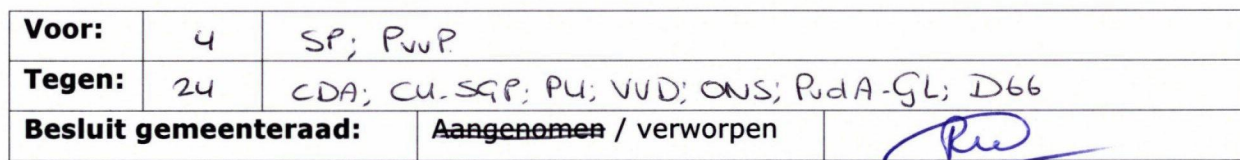 Voor: 4 SP; PvvP.
Tegen: 24 CDA; CU-SGP; PU; VVD; ONS; PvdA-GL; D66
Besluit gemeenteraad: Aangenomen / verworpen